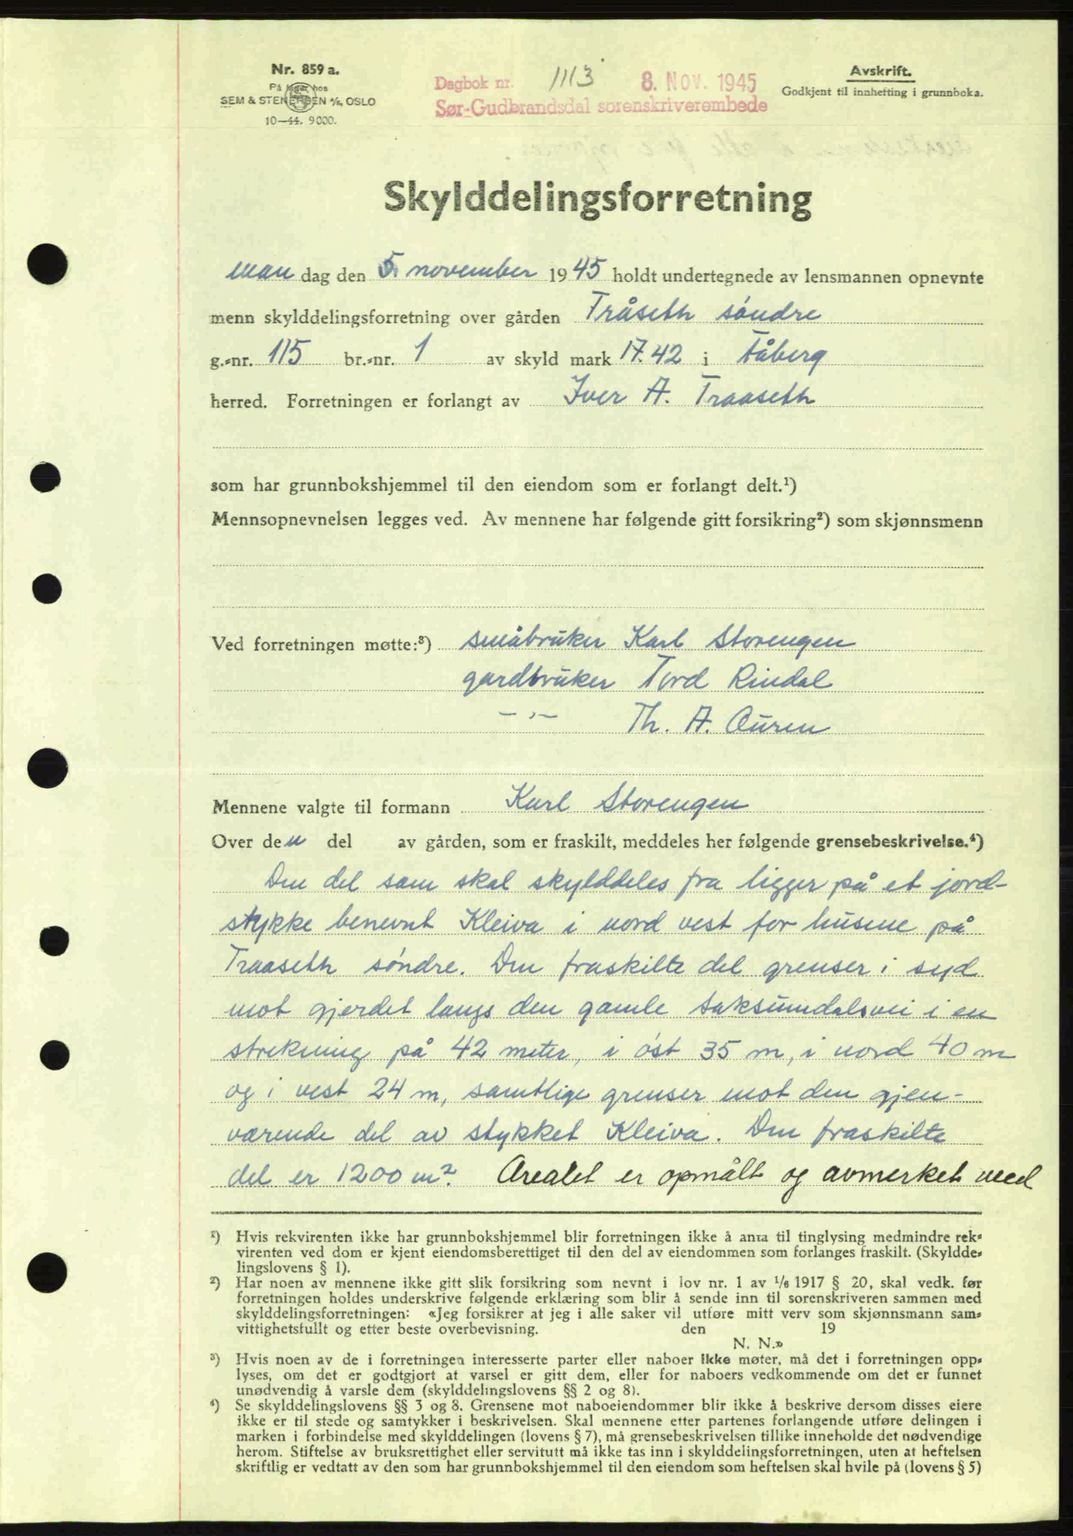 Nr. 859 a.
På lager hos
SEM & STENERSEN A/S, OSLO
10—44. 9000.
Dagbok nr. 1113 8. NOV. 1945
Sør-Gudbrandsdal sorenskriverembede
Avskrift.
Godkjent til innhefting i grunnboka.
Skylddelingsforretning
man dag den 5. november 1945 holdt undertegnede av lensmannen opnevnte
menn skylddelingsforretning over gården Tråseth söndre
g.-nr. 115 br.-nr. 1 av skyld mark 17.42 i Fåberg
herred. Forretningen er forlangt av Iver A. Traaseth
som har grunnbokshjemmel til den eiendom som er forlangt delt.¹)
Mennsopnevnelsen legges ved. Av mennene har følgende gitt forsikring²) som skjønnsmenn
Ved forretningen møtte:³) småbruker Karl Storengen
gardbruker Tord Rindal
— „ — Th. A. Auren
Mennene valgte til formann Karl Storengen
Over den del av gården, som er fraskilt, meddeles her følgende grensebeskrivelse.⁴)
Den del som skal skylddeles fra ligger på et jord-
stykke benevnt Kleiva i nord vest for husene på
Traaseth söndre. Den fraskilte del grenser i syd
mot gjerdet langs den gamle Saksumdalsvei i en
strekning på 42 meter, i öst 35 m, i nord 40 m
og i vest 24 m, samtlige grenser mot den gjen-
værende del av stykket Kleiva. Den fraskilte
del er 1200 m². Arealet er opmålt og avmerket med
¹) Hvis rekvirenten ikke har grunnbokshjemmel blir forretningen ikke å anta til tinglysing medmindre rek-
virenten ved dom er kjent eiendomsberettiget til den del av eiendommen som forlanges fraskilt. (Skyldde-
lingslovens § 1).
²) Har noen av mennene ikke gitt slik forsikring som nevnt i lov nr. 1 av 1/6 1917 § 20, skal vedk. før
forretningen holdes underskrive følgende erklæring som blir å sende inn til sorenskriveren sammen med
skylddelingsforretningen: «Jeg forsikrer at jeg i alle saker vil utføre mitt verv som skjønnsmann sam-
vittighetsfullt og etter beste overbevisning. den 19
N. N.»
³) Hvis noen av de i forretningen interesserte parter eller naboer ikke møter, må det i forretningen opp-
lyses, om det er godtgjort at varsel er gitt dem, eller for naboers vedkommende om det er funnet
unødvendig å varsle dem (skylddelingslovens §§ 2 og 8).
⁴) Se skylddelingslovens §§ 3 og 8. Grensene mot naboeiendommer blir ikke å beskrive dersom disses eiere
ikke er til stede og samtykker i beskrivelsen. Skal mennene etter partenes forlangende utføre delingen i
marken i forbindelse med skylddelingen (lovens § 7), må grensebeskrivelsen tillike inneholde det nødvendige
herom. Stiftelse av bruksrettighet eller servitutt må ikke tas inn i skylddelingsforretningen, uten at heftelsen
skriftlig er vedtatt av den som har grunnbokshjemmel til den eiendom som heftelsen skal hvile på (lovens § 5)